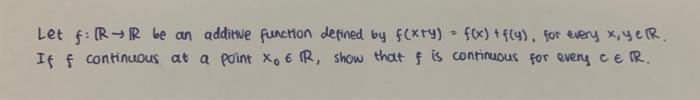 Let f: ℝ → ℝ be an additive function defined by f(x+y) = f(x) + f(y), for every x, y ∈ ℝ.
If f continuous at a point x₀ ∈ ℝ, show that f is continuous for every c ∈ ℝ.